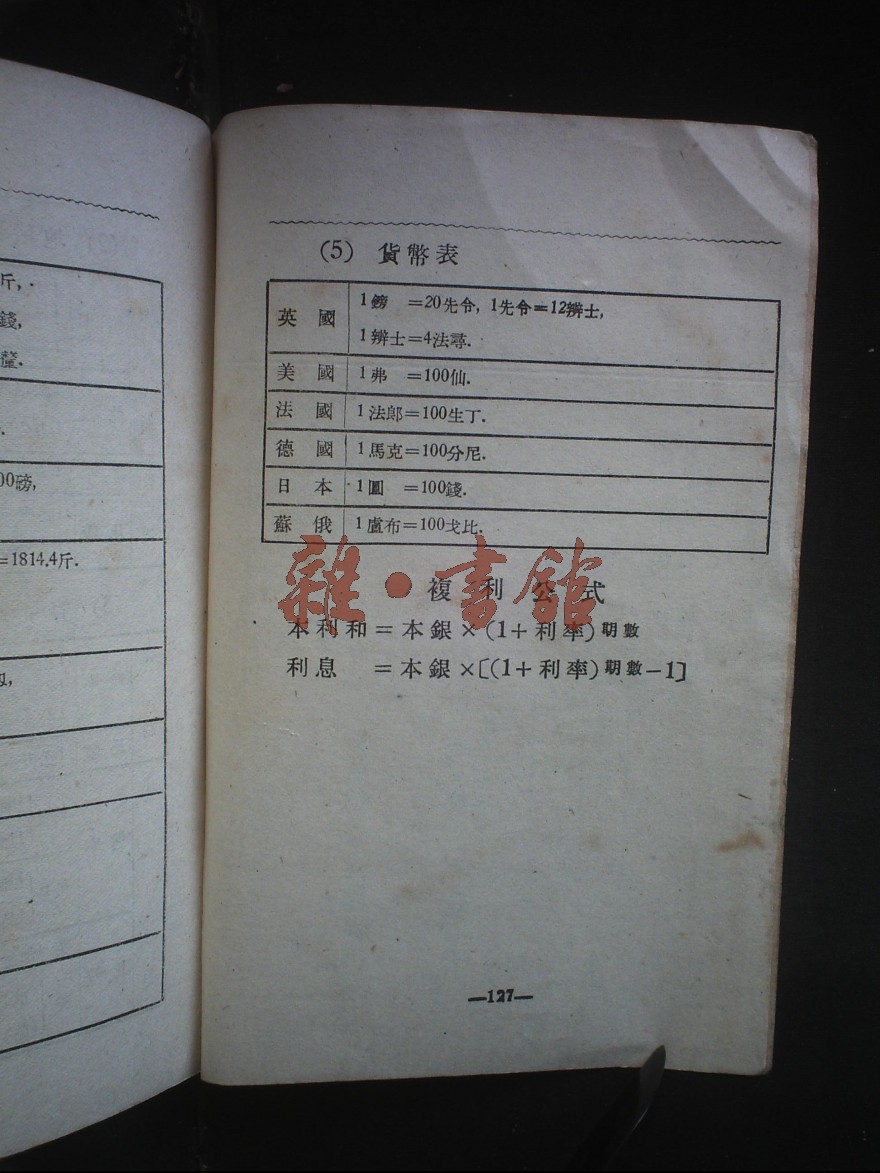 斤,
錢,
釐.
00磅,
=1814.4斤.
(5) 貨幣表
英國 1鎊 =20先令, 1先令=12辨士,
1辨士=4法尋.
美國 1弗 =100仙.
法國 1法郎=100生丁.
德國 1馬克=100分尼.
日本 1圓 =100錢.
蘇俄 1盧布=100戈比.
雜·書館
複利公式
本利和=本銀×(1+利率)期數
利息 =本銀×[(1+利率)期數-1]
—127—